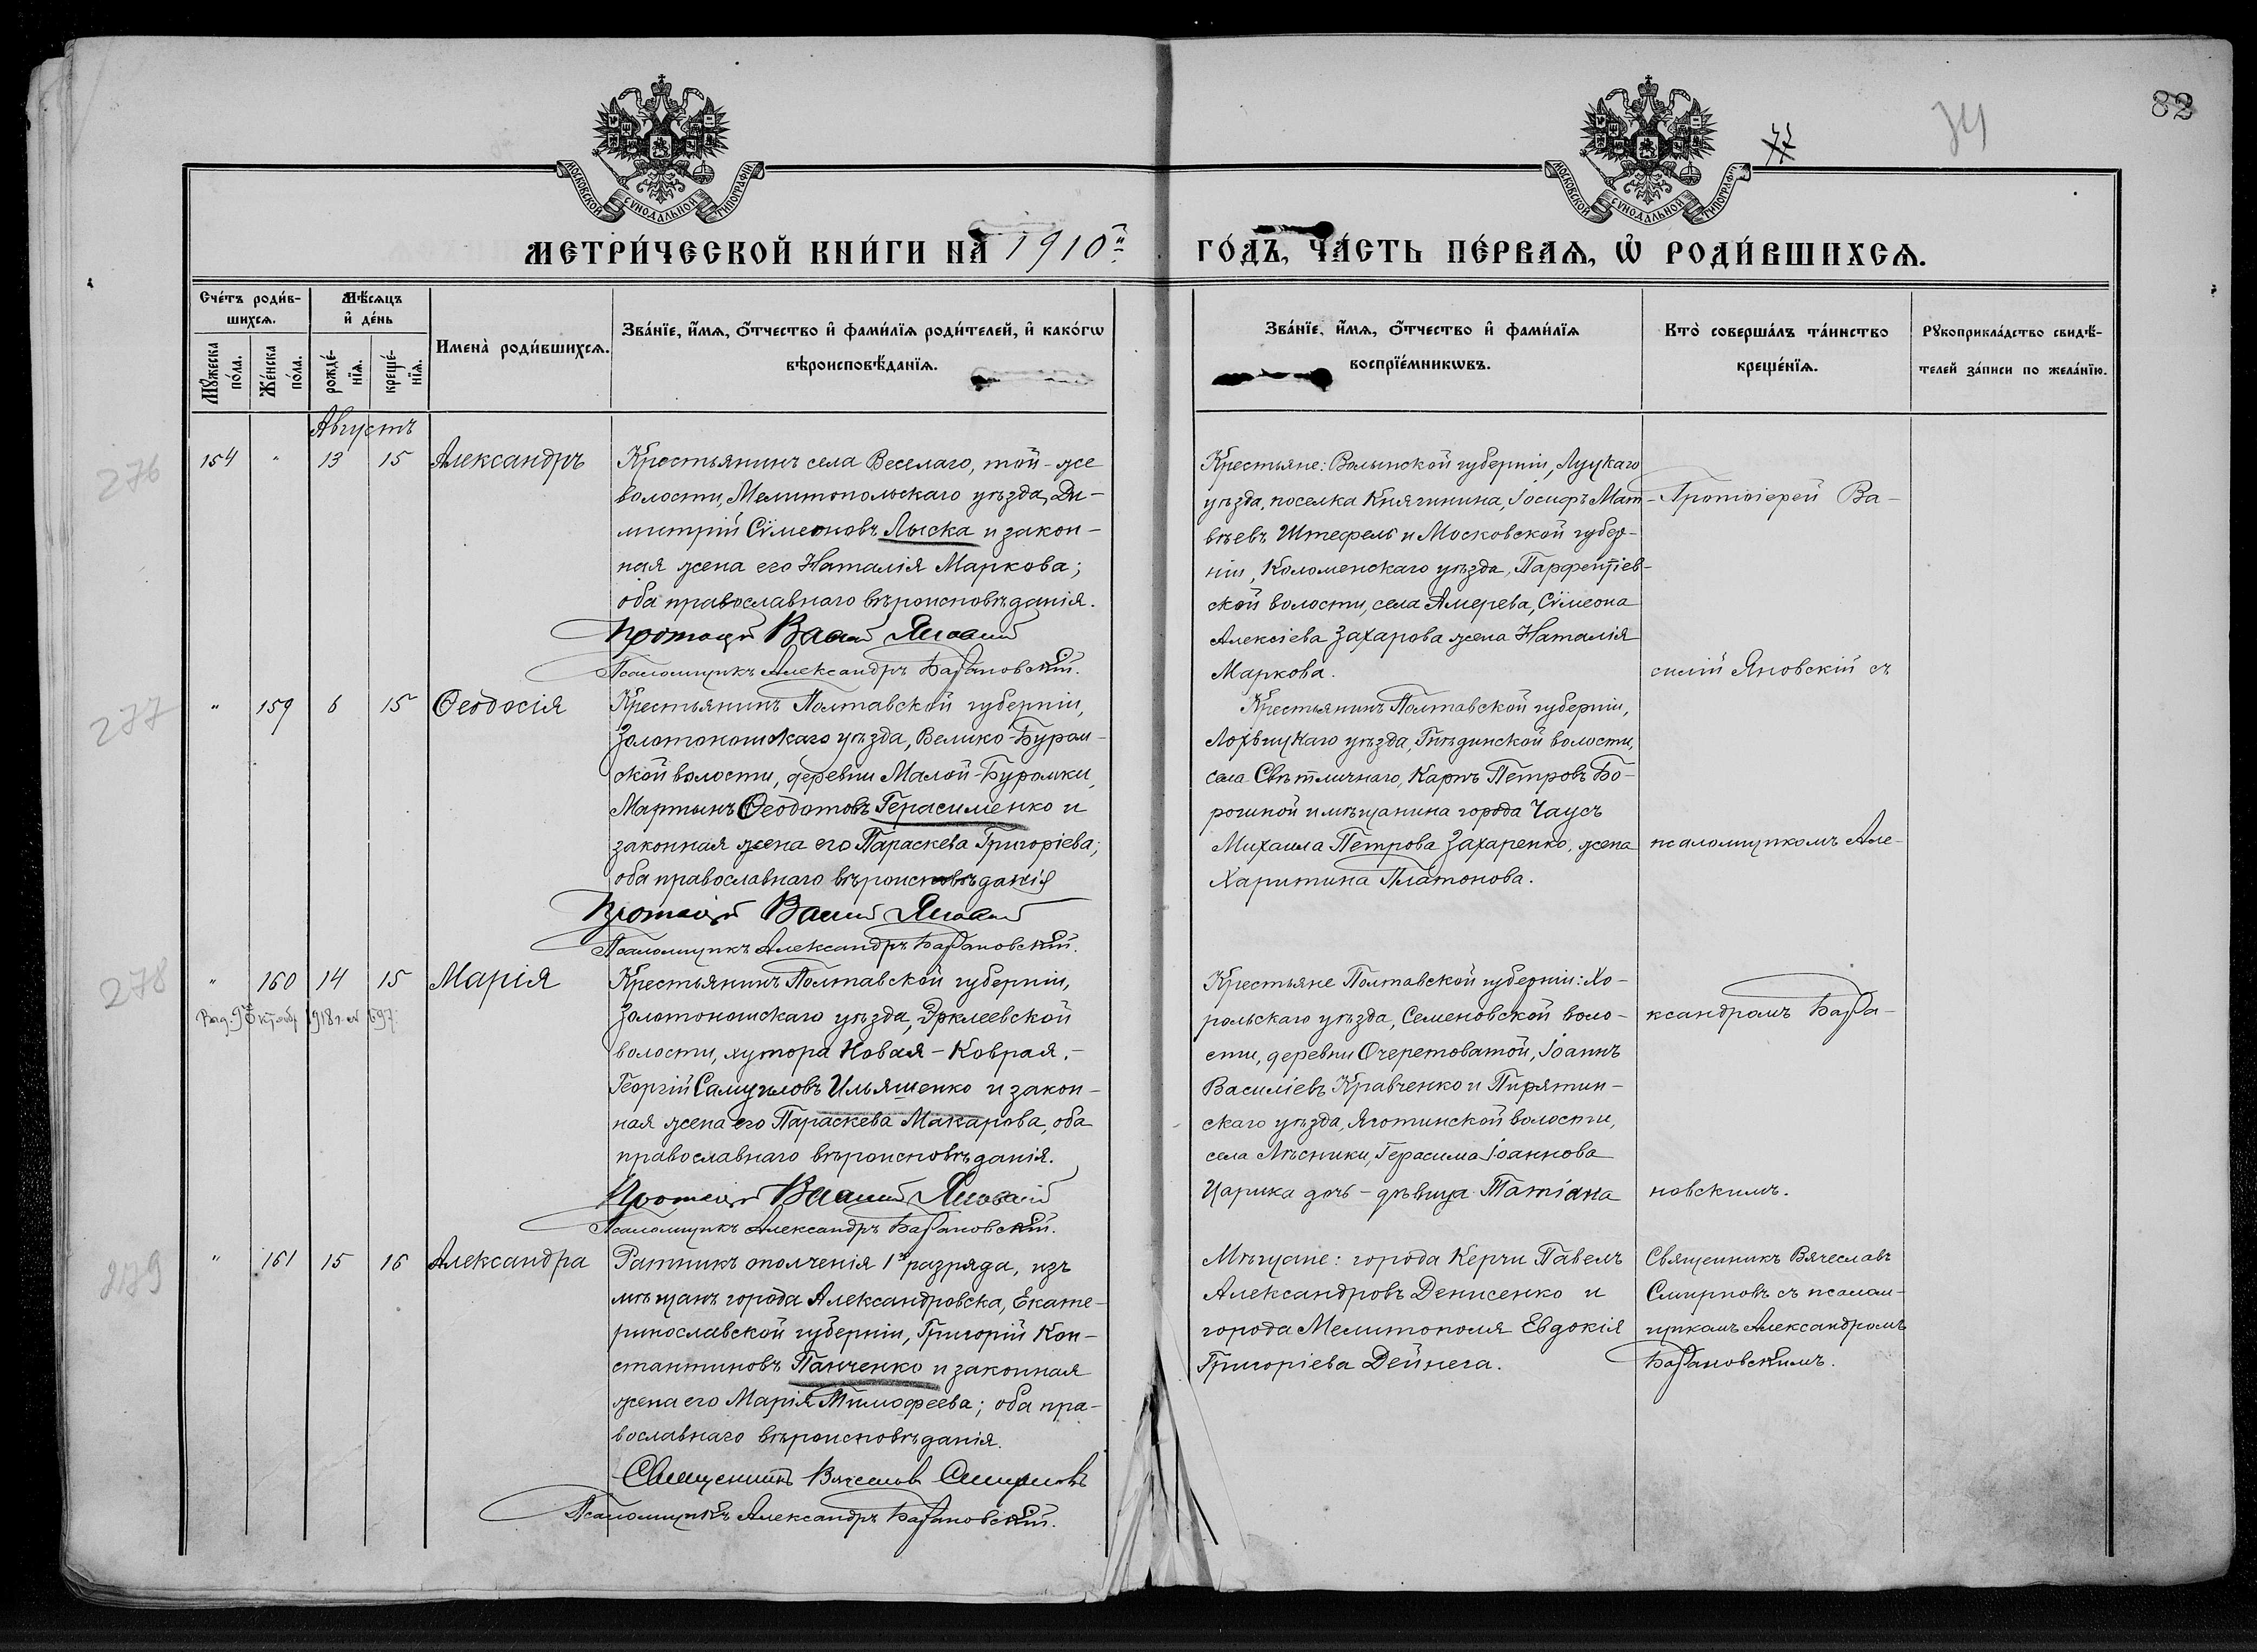 82
74
77
МОСКОВСКОЙ СѴНОДАЛЬНОЙ ТИПОГРАФІИ
МОСКОВСКОЙ СѴНОДАЛЬНОЙ ТИПОГРАФІИ
МЕТРИ́ЧЕСКОЙ КНИ́ГИ НА 1910й
ГО́ДЪ, ЧА́СТЬ ПЕ́РВАѦ, Ѡ҆ РОДИ́ВШИХСѦ.
Сче́тъ роди́в-
шихсѧ.
Мꙋ́жеска по́ла.
Же́нска по́ла.
Мѣ́сѧцъ
и҆ де́нь
рожде́-
нїѧ.
креще́-
нїѧ.
Имена̀ роди́вшихсѧ.
Зва́нїе, и҆́мѧ, ѻ҆́тчество и҆ фами́лїѧ роди́телей, и҆ како́гѡ
вѣроисповѣ́данїѧ.
Зва́нїе, и҆́мѧ, ѻ҆́тчество и҆ фами́лїѧ
воспрїе́мникѡвъ.
Кто̀ соверша́лъ та́инство
креще́нїѧ.
Рꙋкоприкла́дство свидѣ́-
телей за́писи по жела́нїю.
Августъ
276
154 " 13 15 Александръ
Крестьянинъ села Веселаго, той-же
волости, Мелитопольскаго уѣзда, Ди-
митрій Сѵмеоновъ Лыска и закон-
ная жена его Наталія Маркова;
оба православнаго вѣроисповѣданія.
Протоіерей Василій Яновскій
Псаломщикъ Александръ Барановскій.
Крестьяне: Волынской губерніи, Луцкаго
уѣзда, поселка Княгинина, Іосифъ Мат-
вѣевъ Штефель и Московской губер-
ніи, Коломенскаго уѣзда, Парфентіев-
ской волости, села Амерева, Сѵмеона
Алексіева Захарова жена Наталія
Маркова.
Протоіерей Ва-
силій Яновскій съ
277
" 159 6 15 Ѳеодосія
Крестьянинъ Полтавской губерніи,
Золотоношскаго уѣзда, Велико-Бурам-
ской волости, деревни Малой-Буромки,
Мартынъ Ѳеодотовъ Герасименко и
законная жена его Параскева Григоріева;
оба православнаго вѣроисповѣданія
Протоіерей Василій Яновскій
Псаломщикъ Александръ Барановскій.
Крестьянинъ Полтавской губерніи,
Лохвицкаго уѣзда, Гнѣдинской волости,
села Свѣтличнаго, Карпъ Петровъ Бо-
рошной и мѣщанина города Чаусъ
Михаила Петрова Захаренко, жена
Харитина Платонова.
псаломщикомъ Але-
278
" 160 14 15 Марія
Выд. 9 Октябр 1918 г. № 697
Крестьянинъ Полтавской губерніи,
Золотоношскаго уѣзда, Ирклеевской
волости, хутора Новая-Коврая,-
Георгій Самуиловъ Ильяшенко и закон-
ная жена его Параскева Макарова, оба
православнаго вѣроисповѣданія.
Протоіерей Василій Яновскій
Псаломщикъ Александръ Барановскій.
Крестьяне Полтавской губерніи: Хо-
рольскаго уѣзда, Семеновской воло-
сти, деревни Очеретоватой, Іоаннъ
Василіевъ Кравченко и Пирятин-
скаго уѣзда, Яготинской волости,
села Лѣсники, Герасима Іоаннова
Царика дочь-дѣвица Татіана
ксандромъ Бара-
новскимъ.
279
" 161 15 16 Александра
Ратникъ ополченія 1го разряда, изъ
мѣщанъ города Александровска, Екате-
ринославской губерніи, Григорій Кон-
стантиновъ Панченко и законная
жена его Марія Тимофеева; оба пра-
вославнаго вѣроисповѣданія.
Священникъ Вячеславъ Смирновъ
Псаломщикъ Александръ Барановскій.
Мѣщане: города Керчи Павелъ
Александровъ Денисенко и
города Мелитополя Евдокія
Григоріева Дейнега.
Священникъ Вячеславъ
Смирновъ съ псалом-
щикомъ Александромъ
Барановскимъ.